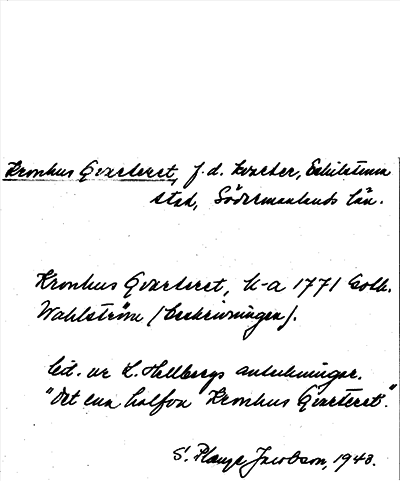 Kronhus Qvarteret, f.d. kvarter, Eskilstuna
stad, Södermanlands län.
Kronhus Qvarteret, U-a 1771 Goth.
Wahlström (beskrivningen).
Cit. ur K. Hellbergs anteckningar.
"Det ena halfva Kronhus Qvarteret."
S. Jacobson, 1943.